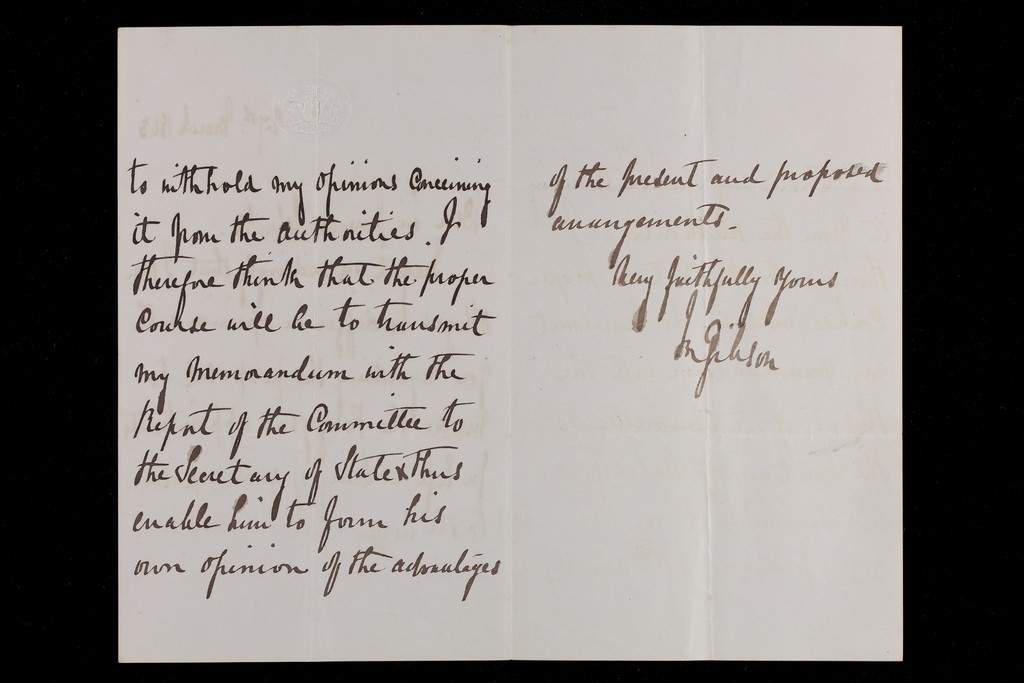 to withhold my opinions concerning
it from the authorities. I
therefore think that the proper
course will be to transmit
my memorandum with the
Report of the Committee to
the Secretary of State & thus
enable him to form his
own opinion of the advantages
of the present and proposed
arrangements.
Very faithfully yours
Gibson